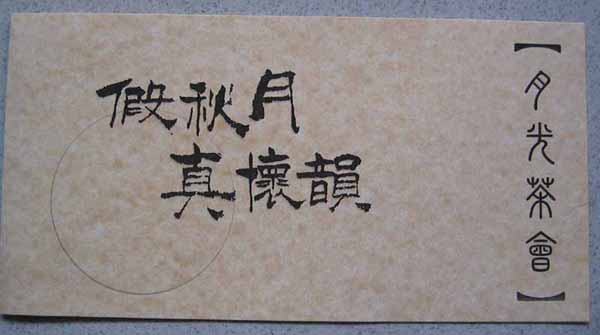 假秋月
真懷韻
【月光茶會】